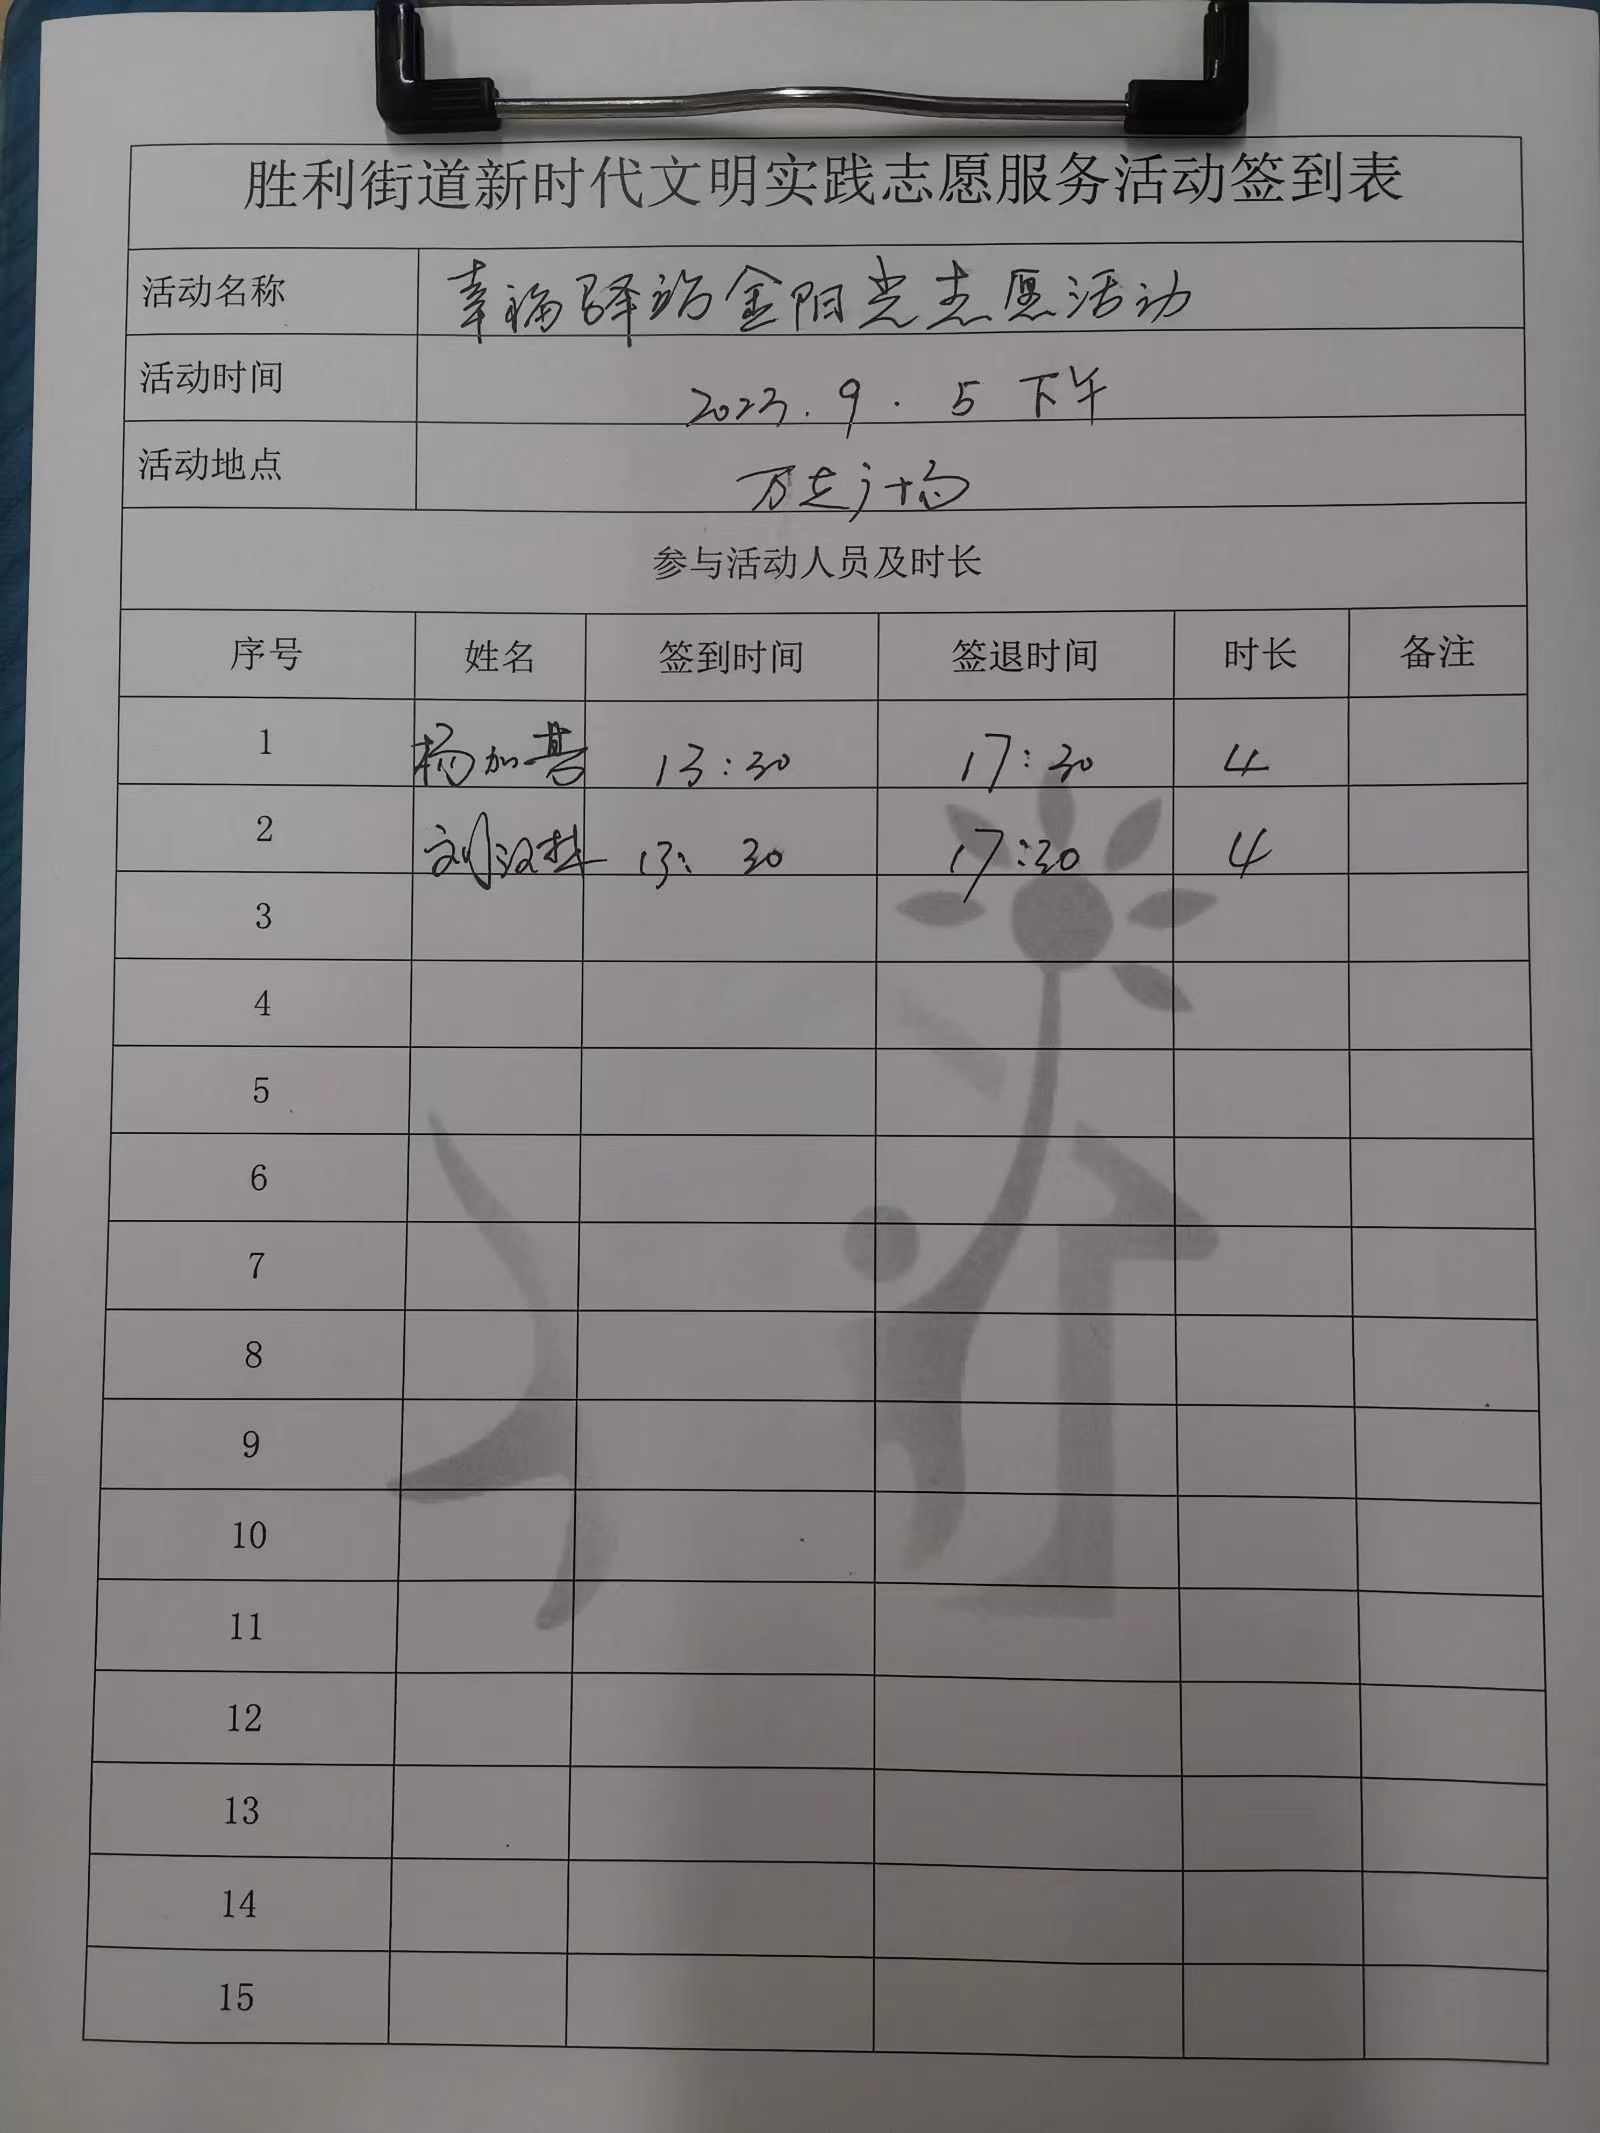 胜利街道新时代文明实践志愿服务活动签到表
活动名称 幸福驿站金阳光志愿活动
活动时间 2023.9.5 下午
活动地点 万达广场
参与活动人员及时长
序号 姓名 签到时间 签退时间 时长 备注
1 杨加 13:30 17:30 4
2 刘汉 13:30 17:30 4
3
4
5
6
7
8
9
10
11
12
13
14
15